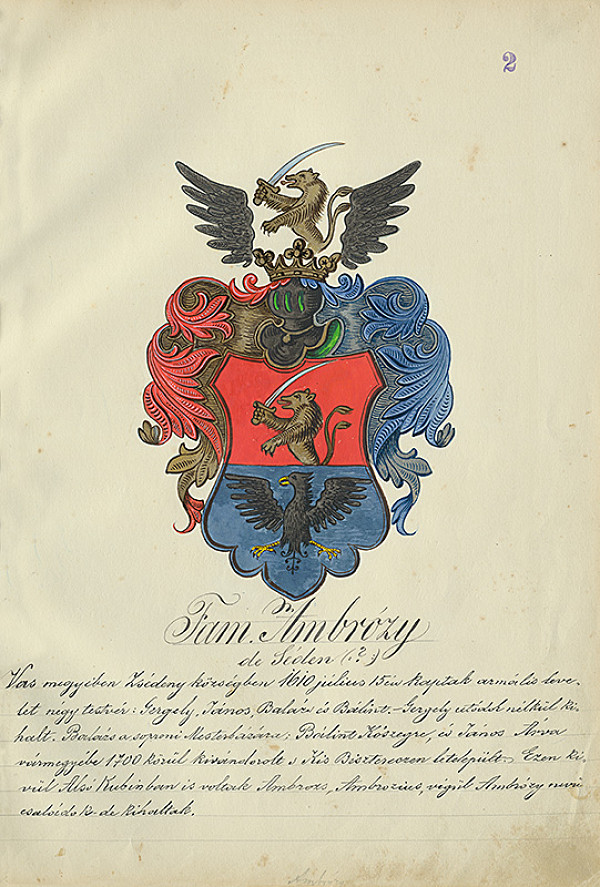 2
Fam. Ambrózy
de Séden (?)
Vas megyében Zsédeny községben 1610 július 15én kaptak armális leve-
let négy testvér: Gergely, János, Balázs és Bálint. - Gergely utódok nélkül ki-
halt. Balázs a soproni Mesterházára; Bálint Kőszegre, és János Árva
vármegyébe 1700 körül kivándorolt s Kis Bisztereczen letelepült. Ezen ki-
vül Alsó Kubinban is voltak Ambrozs, Ambrozius, végül Ambrózy nevü
családok - de kihaltak.
Ambrózy